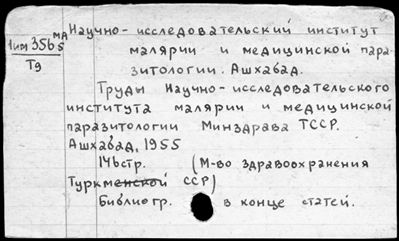 Научно-исследовательский институт
1им 356 МД
5
Т9
малярии и медицинской пара
зитологии. Ашхабад.
Труды Научно-исследовательского
института малярии и медицинской
паразитологии Минздрава ТССР.
Ашхабад, 1955
146стр. (М-во здравоохранения
Туркменской ССР)
Библиогр. в конце статей.